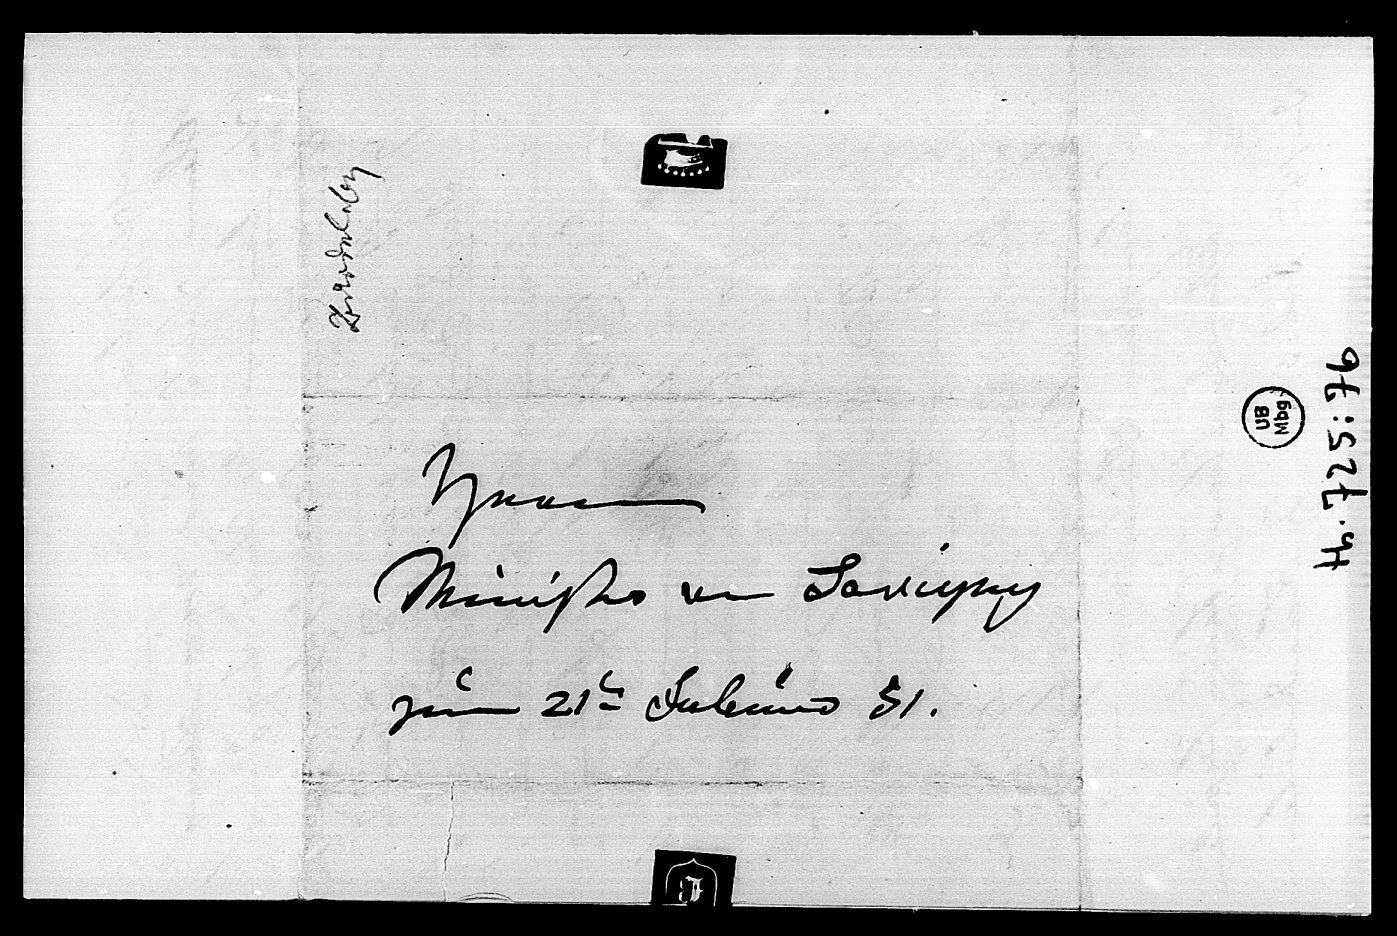 Herrn
Minister von Savigny
zum 21ten Februar 51.
UB
Mbg
Hs. 725:76